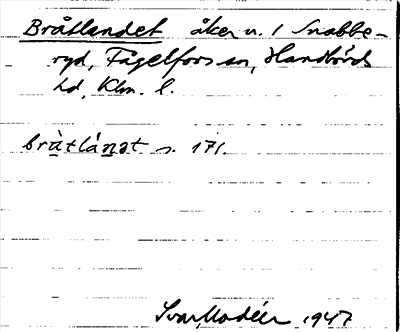 Bråtlandet åker u. 1 Snabbe-
ryd, Fågelfors sn, Handbörds
hd, Klm. l.
bràtlánət s. 171.
Ivar Modéer 1947